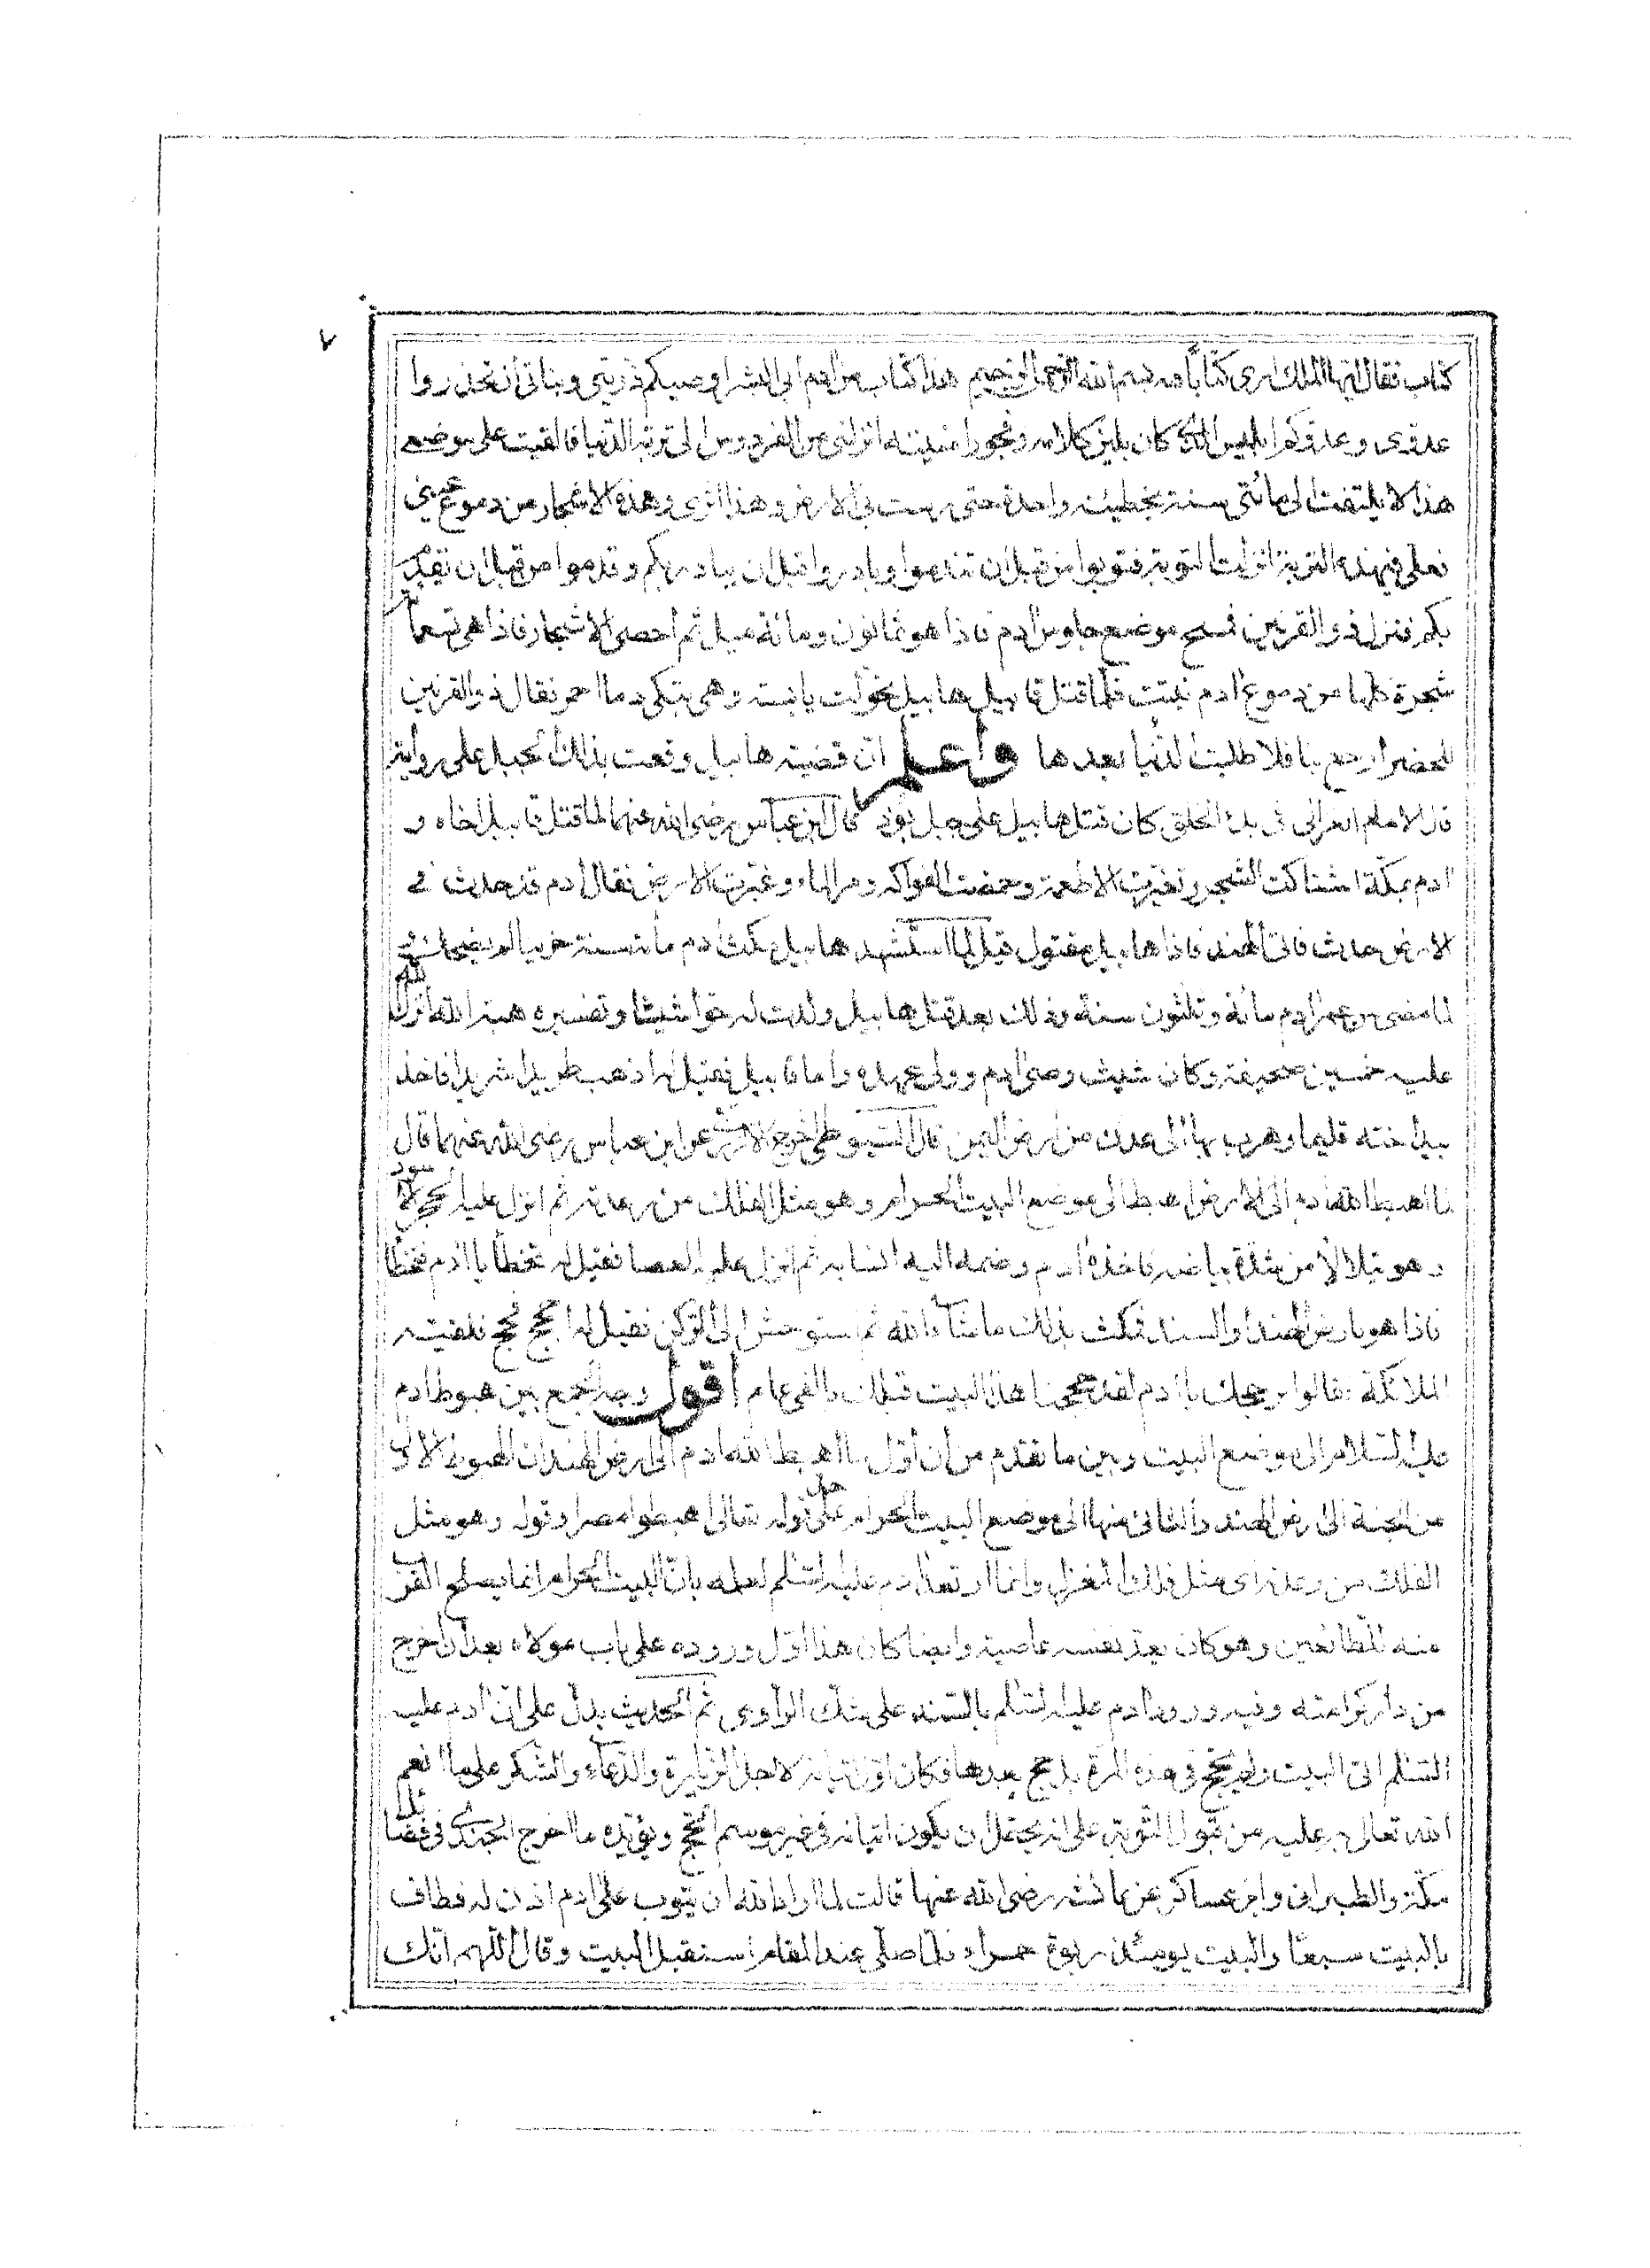 ٧
كتاب فقال ايها الملك ارى كتابا فيه بسم الله الرحمن الرحيم هذا كتاب من ادم ابى البشر اوصيكم ذريتى وبناتى ان تحذروا
عدوى وعدوكم ابليس الذى كان يلين كلامه وفجور امنيته انزلنى من الفردوس الى تربة الدنيا فالقيت على موضعى
هذا لا يلتفت الى مائتى سنة بخطيئة واحدة حتى رست فى الارض وهذا اثرى وهذه الاشجار من دموع عينى
فعلى فى هذه التربة انزلت التوبة فتوبوا من قبل ان تندموا وبادروا قبل ان يبادر بكم وقدموا من قبل ان تقدم
بكم فنزل ذو القرنين فمسح موضع جلوس ادم فاذا هو ثمانون ومائة ميل ثم احصى الاشجار فاذا هى تسعمائة
شجرة كلها من دموع ادم نبتت فلما قتل قابيل هابيل تحولت يابسة وهى تبكى دما احمر فقال ذو القرنين
للخضر ارجع بنا فلا طلبت الدنيا بعدها واعلم ان قضية هابيل وقعت بذلك الجبل على رواية
قال الامام فى بدء الخلق كان قتل هابيل على جبل نود قال ابن عباس رضى الله عنهما لما قتل قابيل اخاه و
ادم بمكة اشتاكت الشجر وتغيرت الاطعمة وحمضت الفواكه ومر الماء واغبرت الارض فقال ادم قد حدث فى
الارض حدث فاتى الهند فاذا هابيل مقتول قيل لما استشهد هابيل مكث ادم مائة سنة حزينا لم يضحك ثم
لما مضى من عمر ادم مائة وثلثون سنة وذلك بعد قتل هابيل ولدت له حوا شيثا وتفسيره هبة الله انزل الله
عليه خمسين صحيفة وكان شيث وصى ادم وولى عهده واما قابيل فقيل له اذهب طريدا شريدا فاخذ
بيد اخته قليما وهرب بها الى عدن من ارض اليمن قال السيوطى اخرج الازرقى عن ابن عباس رضى الله عنهما قال
لما اهبط الله ادم الى الارض اهبط الى موضع البيت الحرام وهو مثل الفلك من رعدته ثم انزل عليه الحجر الاسود
وهو يتلالا من شدة بياضه فاخذه ادم وضمه اليه انسا به ثم انزل عليه العصا فقيل له تخط يا ادم فتخطا
فاذا هو بارض الهند او السند فمكث بذلك ما شاء الله ثم استوحش الى الركن فقيل له احجج فحج فلقيته
الملائكة فقالوا بر حجك يا ادم لقد حججنا هذا البيت قبلك بالفى عام اقول وجه الجمع بين هبوط ادم
عليه السلام الى موضع البيت وبين ما تقدم من ان اول ما اهبط الله ادم الى ارض الهند ان الهبوط الاول
من الجنة الى ارض الهند والثانى منها الى موضع البيت الحرام على قوله تعالى اهبطوا مصرا وقوله وهو مثل
الفلك من رعدته اى مثل فلك المغزل وانما ارتعد ادم عليه السلم لعلمه بان البيت الحرام انما يصلح القرب
منه للطائعين وهو كان يعد نفسه عاصيه وايضا كان هذا اول وروده على باب مولاه بعد ان اخرج
من دار كرامته وفيه ورود ادم عليه السلم بالسند على شك الراوى ثم الحديث يدل على ان ادم عليه
السلم اتى البيت ولم يحج فى هذه المرة بل حج بعدها فكان اول اتيانه لاجل الزيارة والدعاء والشكر على ما انعم
الله تعالى به عليه من قبول التوبة على انه يحتمل ان يكون اتيانه فى غير موسم الحج ويؤيده ما اخرج الجندى فى فضائل
مكة والطبرانى وابن عساكر عن عائشة رضى الله عنها قالت لما اراد الله ان يتوب على ادم اذن له فطاف
بالبيت سبعا والبيت يومئذ ربوة حمراء فلما صلى عند المقام استقبل البيت وقال اللهم انك